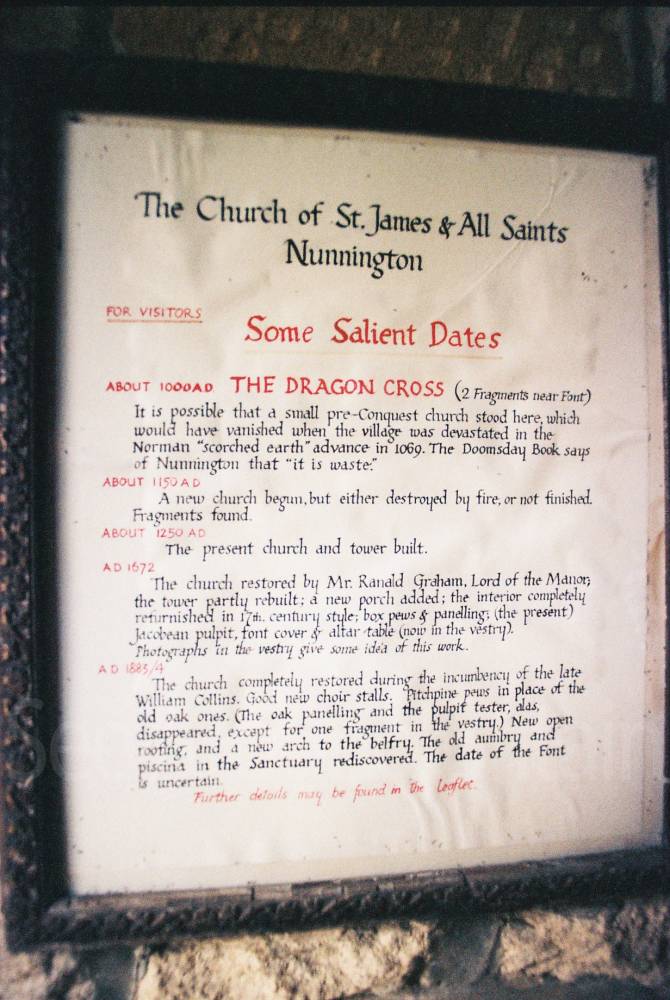 The Church of St. James & All Saints
Nunnington
FOR VISITORS
Some Salient Dates
ABOUT 1000AD THE DRAGON CROSS (2 Fragments near Font)
It is possible that a small pre-Conquest church stood here, which
would have vanished when the village was devastated in the
Norman "scorched earth" advance in 1069. The Doomsday Book says
of Nunnington that "it is waste."
ABOUT 1150 AD
A new church begun, but either destroyed by fire, or not finished.
Fragments found.
ABOUT 1250 AD
The present church and tower built.
AD 1672
The church restored by Mr. Ranald Graham, Lord of the Manor;
the tower partly rebuilt; a new porch added; the interior completely
refurnished in 17th. century style; box pews & panelling; (the present)
Jacobean pulpit, font cover & altar-table (now in the vestry).
Photographs in the vestry give some idea of this work.
AD 1883/4
The church completely restored during the incumbency of the late
William Collins. Good new choir stalls. Pitchpine pews in place of the
old oak ones. (The oak panelling and the pulpit tester, alas,
disappeared, except for one fragment in the vestry.) New open
roofing, and a new arch to the belfry. The old aumbry and
piscina in the Sanctuary rediscovered. The date of the Font
is uncertain.
Further details may be found in the leaflet.